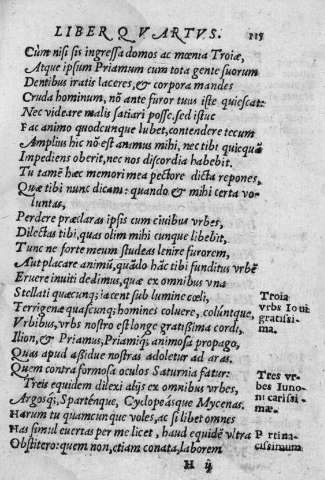 LIBER QVARTVS. 115
Cùm nisi sis ingressa domos ac mœnia Troiæ,
Atque ipsum Priamum cum tota gente suorum
Dentibus iratis laceres, & corpora mandes
Cruda hominum, nō ante furor tuus iste quiescat:
Nec videare malis satiari posse, sed istuc
Fac animo quodcunque lubet, contendere tecum
Amplius hic nō est animus mihi, nec tibi quicquā
Impediens oberit, nec nos discordia habebit.
Tu tamē hæc memori mea pectore dicta repones,
Quæ tibi nunc dicam: quando & mihi certa vo-
luntas,
Perdere præclaras ipsis cum ciuibus vrbes,
Dilectas tibi, quas olim mihi cunque libebit,
Tunc ne forte meum studeas lenire furorem,
Aut placare animū, quādo hāc tibi funditus vrbē
Eruere inuiti dedimus, quæ ex omnibus vna
Stellati quæcunq; iacent sub lumine cœli,
Troia
Terrigenæ quascunq; homines coluere, coluntque,
vrbs Ioui
gratissi-
Vrbibus, vrbs nostro est longe gratissima cordi,
ma.
Ilion, & Priamus, Priamiq; animosa propago,
Quas apud assidue nostras adoletur ad aras.
Quem contra formosa oculos Saturnia fatur:
Tres vr-
Treis equidem dilexi alijs ex omnibus vrbes,
bes Iuno-
Argosq;, Spartenque, Cyclopeásque Mycenas.
ni carissi-
mæ.
Harum tu quamcunque voles, ac si libet omnes
Has simul euertas per me licet, haud equidē vltra
Pertina-
Obstitero: quem non, etiam conata, laborem
cissimum
H ij